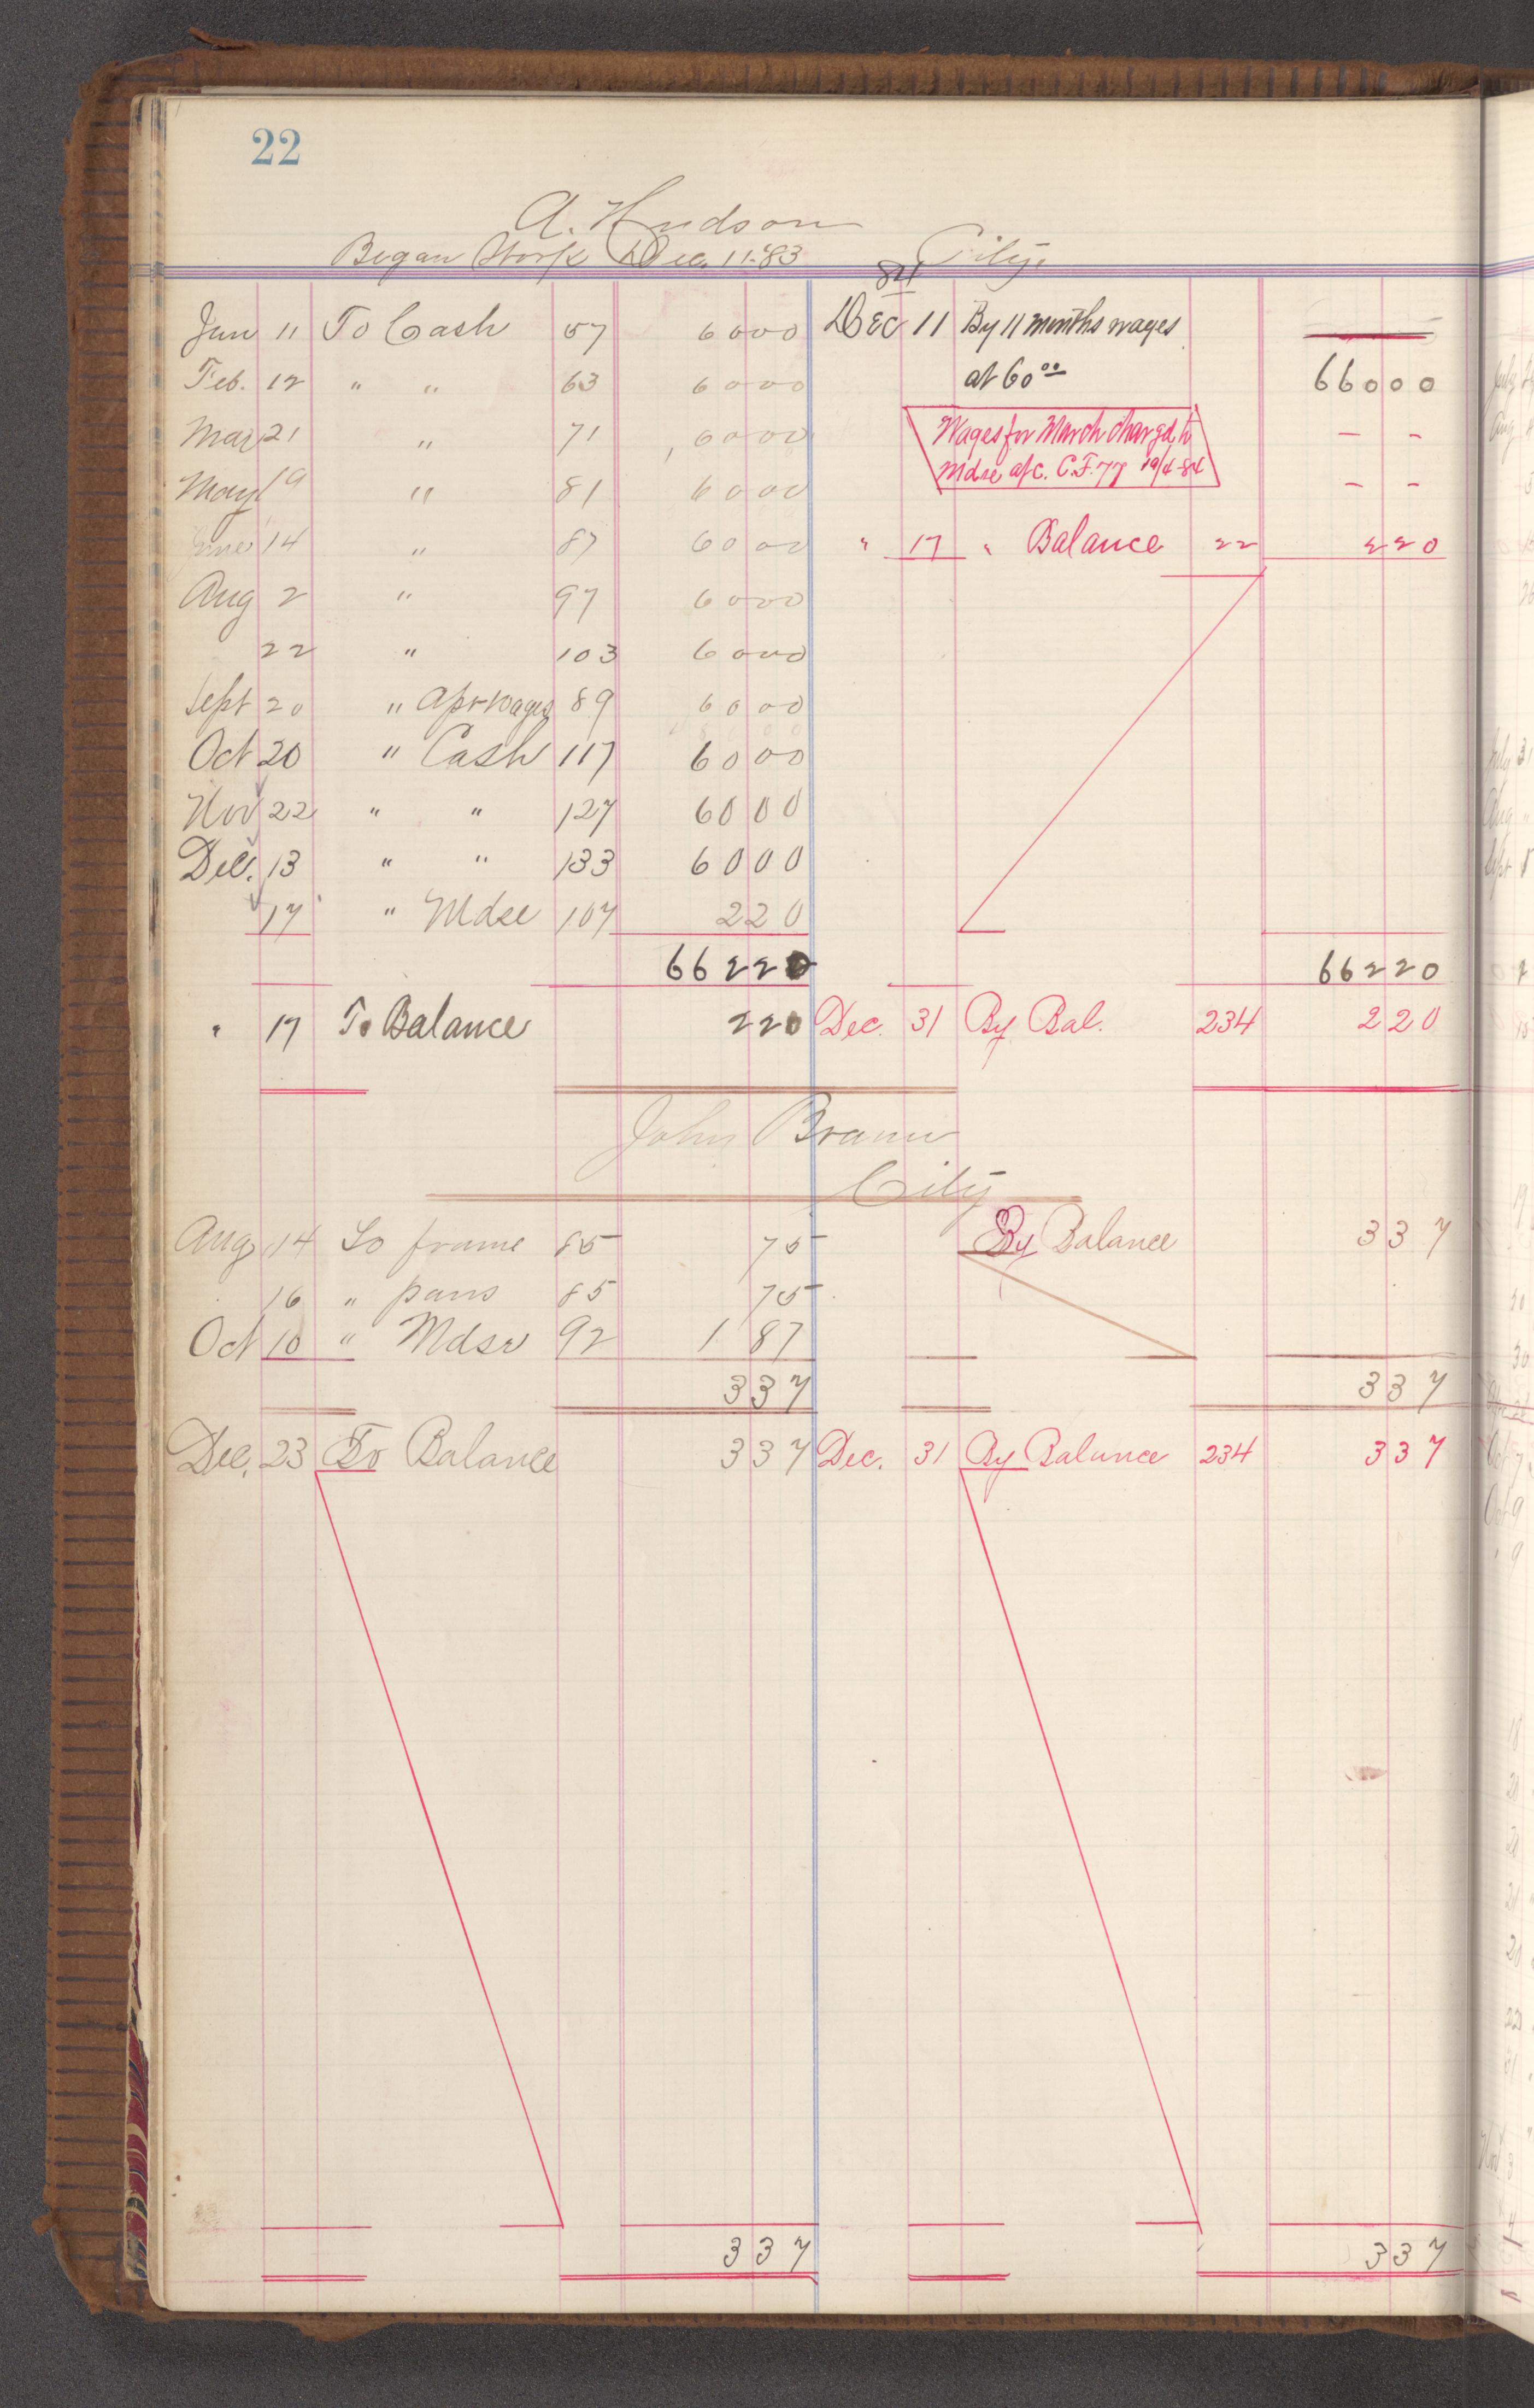 22
A. Hudson
Began Work Dec. 11-83 City.
84
Jan 11 To Cash 57 6000 Dec 11 By 11 months wages
Feb. 12 " " 63 6000 at 60 00 66000
Mar 21 " 71 6000 Wages for March charged to – –
May 19 " 81 6000 Mdse a/c. C.F. 77 19/4-84 – –
June 14 " 87 6000 " 17 " Balance 22 220
Aug 2 " 97 6000
22 " 103 6000
Sept 20 " Apr wages 89 6000
Oct 20 " Cash 117 6000
Nov 22 " " 127 6000
Dec. 13 " " 133 6000
17 " Mdse 107 220
66220 66220
" 17 To Balance 220 Dec. 31 By Bal. 234 220
John
City
Aug 14 To frame 85 75 By Balance 337
16 " pans 85 75
Oct 10 " Mdse 92 1 87
337 337
Dec. 23 To Balance 337 Dec. 31 By Balance 234 337
337 337